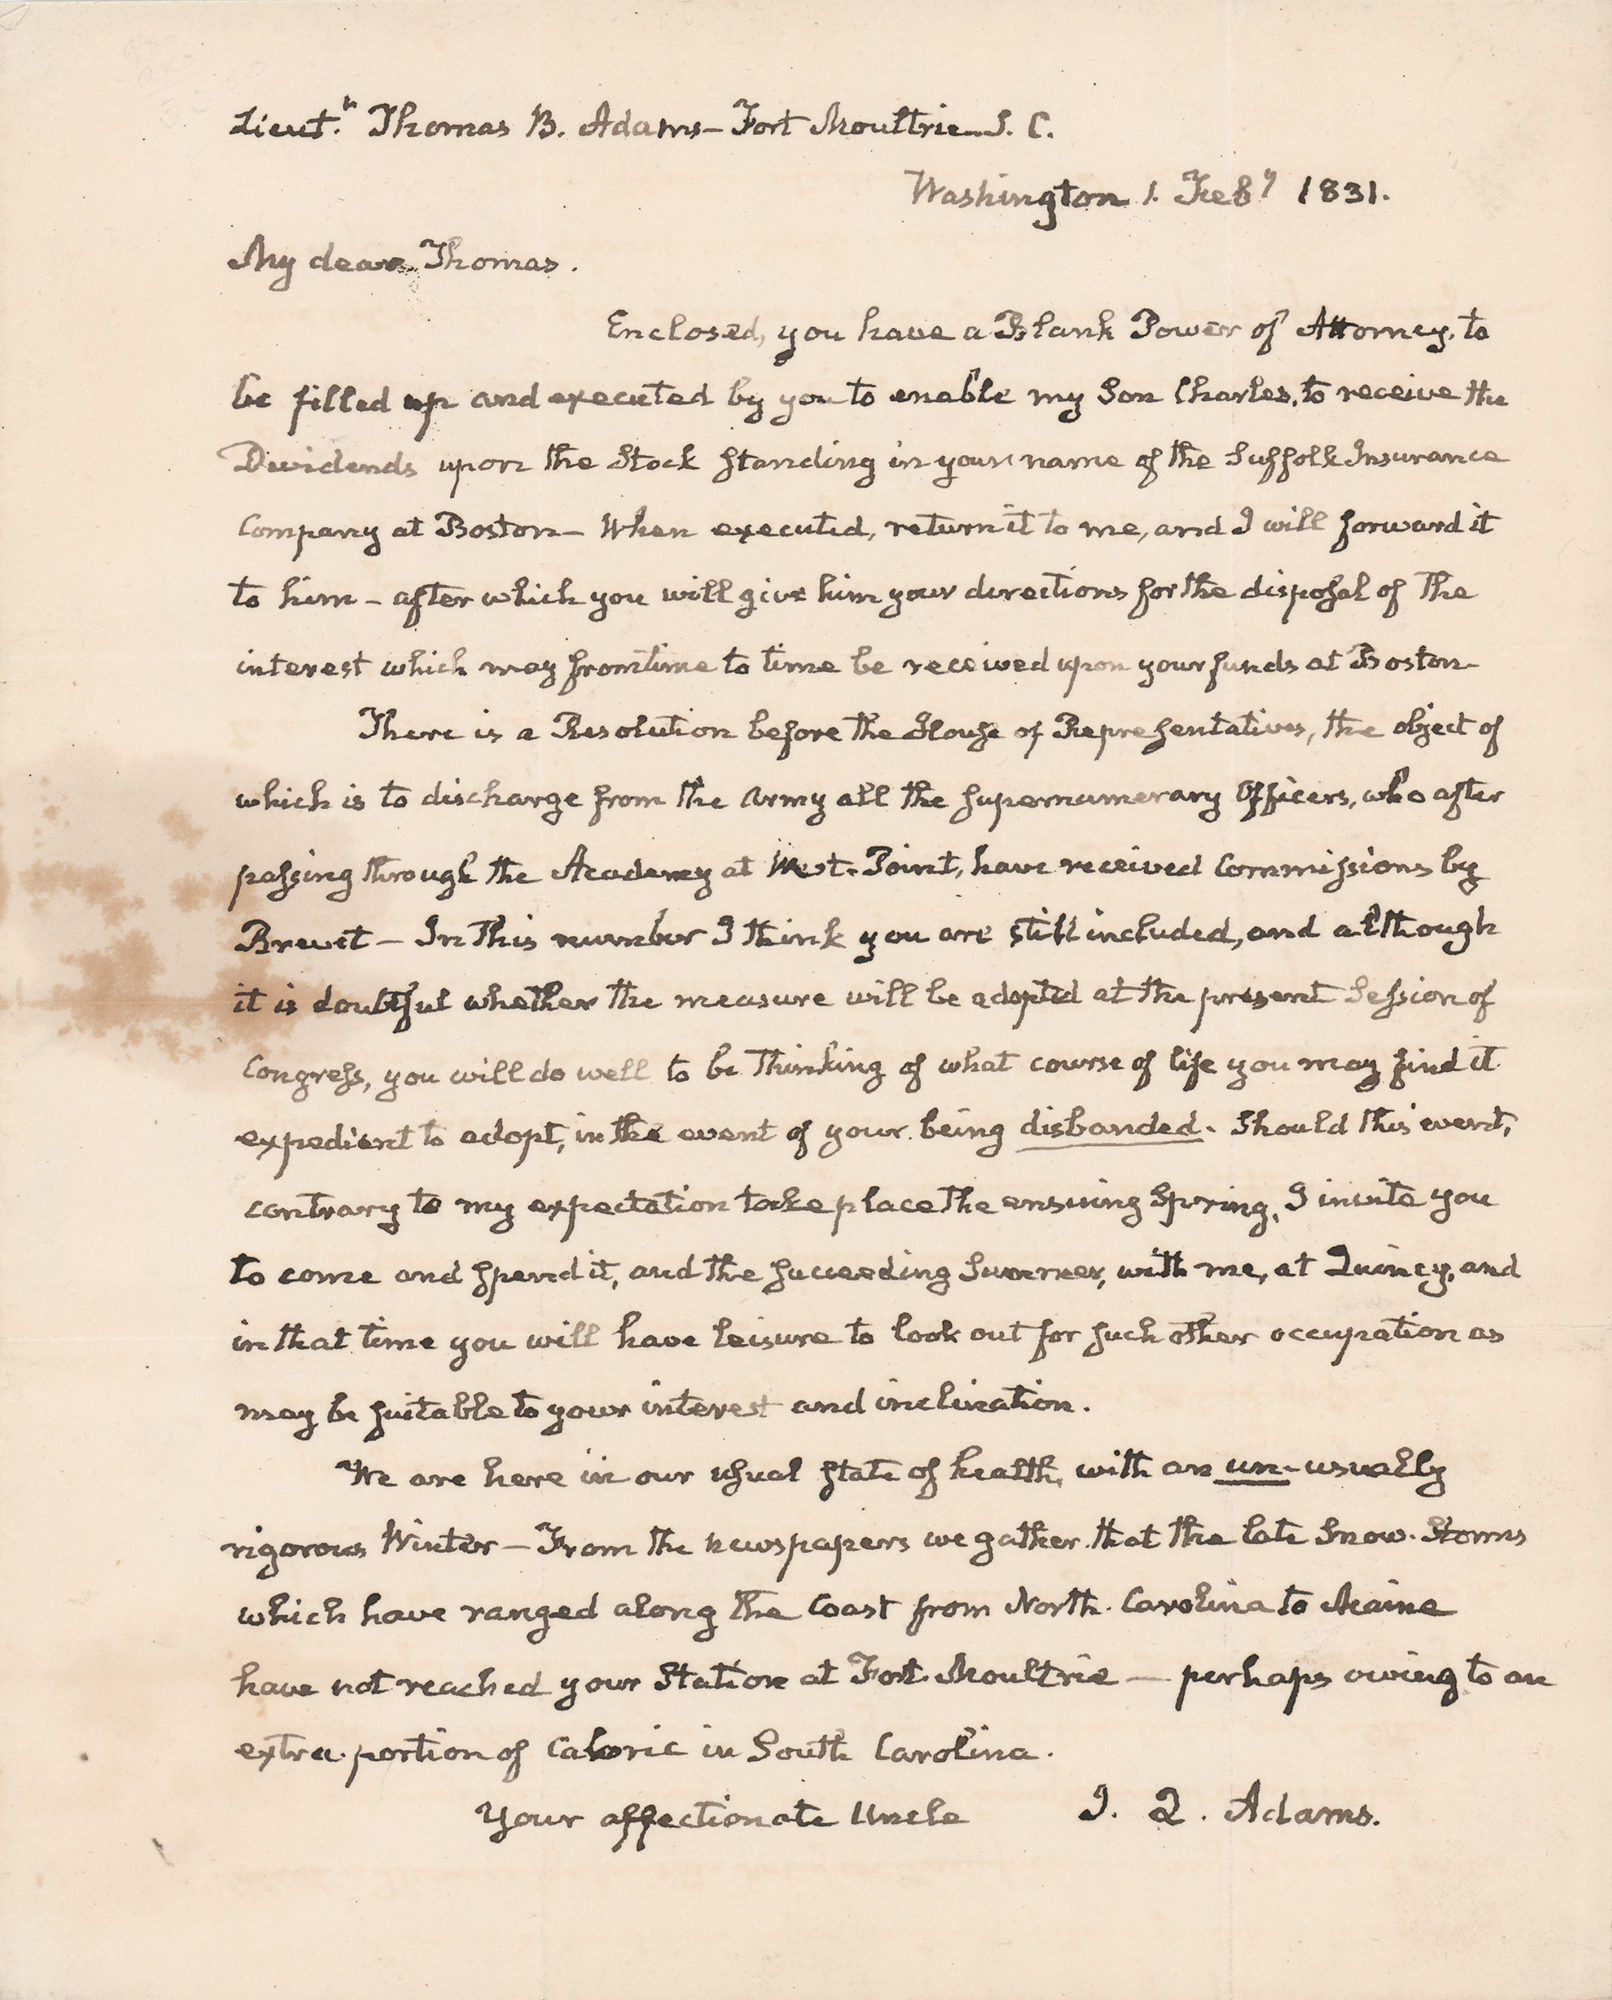 Lieut.t Thomas B. Adams— Fort Moultrie—S. C.
Washington 1. Feby 1831.
My dear Thomas.
Enclosed, you have a Blank Power of Attorney, to
be filled up and executed by you to enable my Son Charles, to receive the
Dividends upon the Stock standing in your name of the Suffolk Insurance
Company at Boston— When executed, return it to me, and I will forward it
to him — after which you will give him your directions for the disposal of the
interest which may from time to time be received upon your funds at Boston—
There is a Resolution before the House of Representatives, the object of
which is to discharge from the Army all the supernumerary Officers, who after
passing through the Academy at West-Point, have received Commissions by
Brevet — In this number I think you are still included, and although
it is doubtful whether the measure will be adopted at the present Session of
Congress, you will do well to be thinking of what course of life you may find it
expedient to adopt, in the event of your being disbanded. Should this event,
contrary to my expectation take place the ensuing Spring, I invite you
to come and spend it, and the succeeding Summer, with me, at Quincy, and
in that time you will have leisure to look out for such other occupation as
may be suitable to your interest and inclination.
We are here in our usual state of health, with an un-usually
rigorous Winter — From the newspapers we gather that the late Snow-Storms
which have ranged along the Coast from North-Carolina to Maine
have not reached your Station at Fort-Moultrie — perhaps owing to an
extra-portion of Caloric in South Carolina.
Your affectionate Uncle J. Q. Adams.